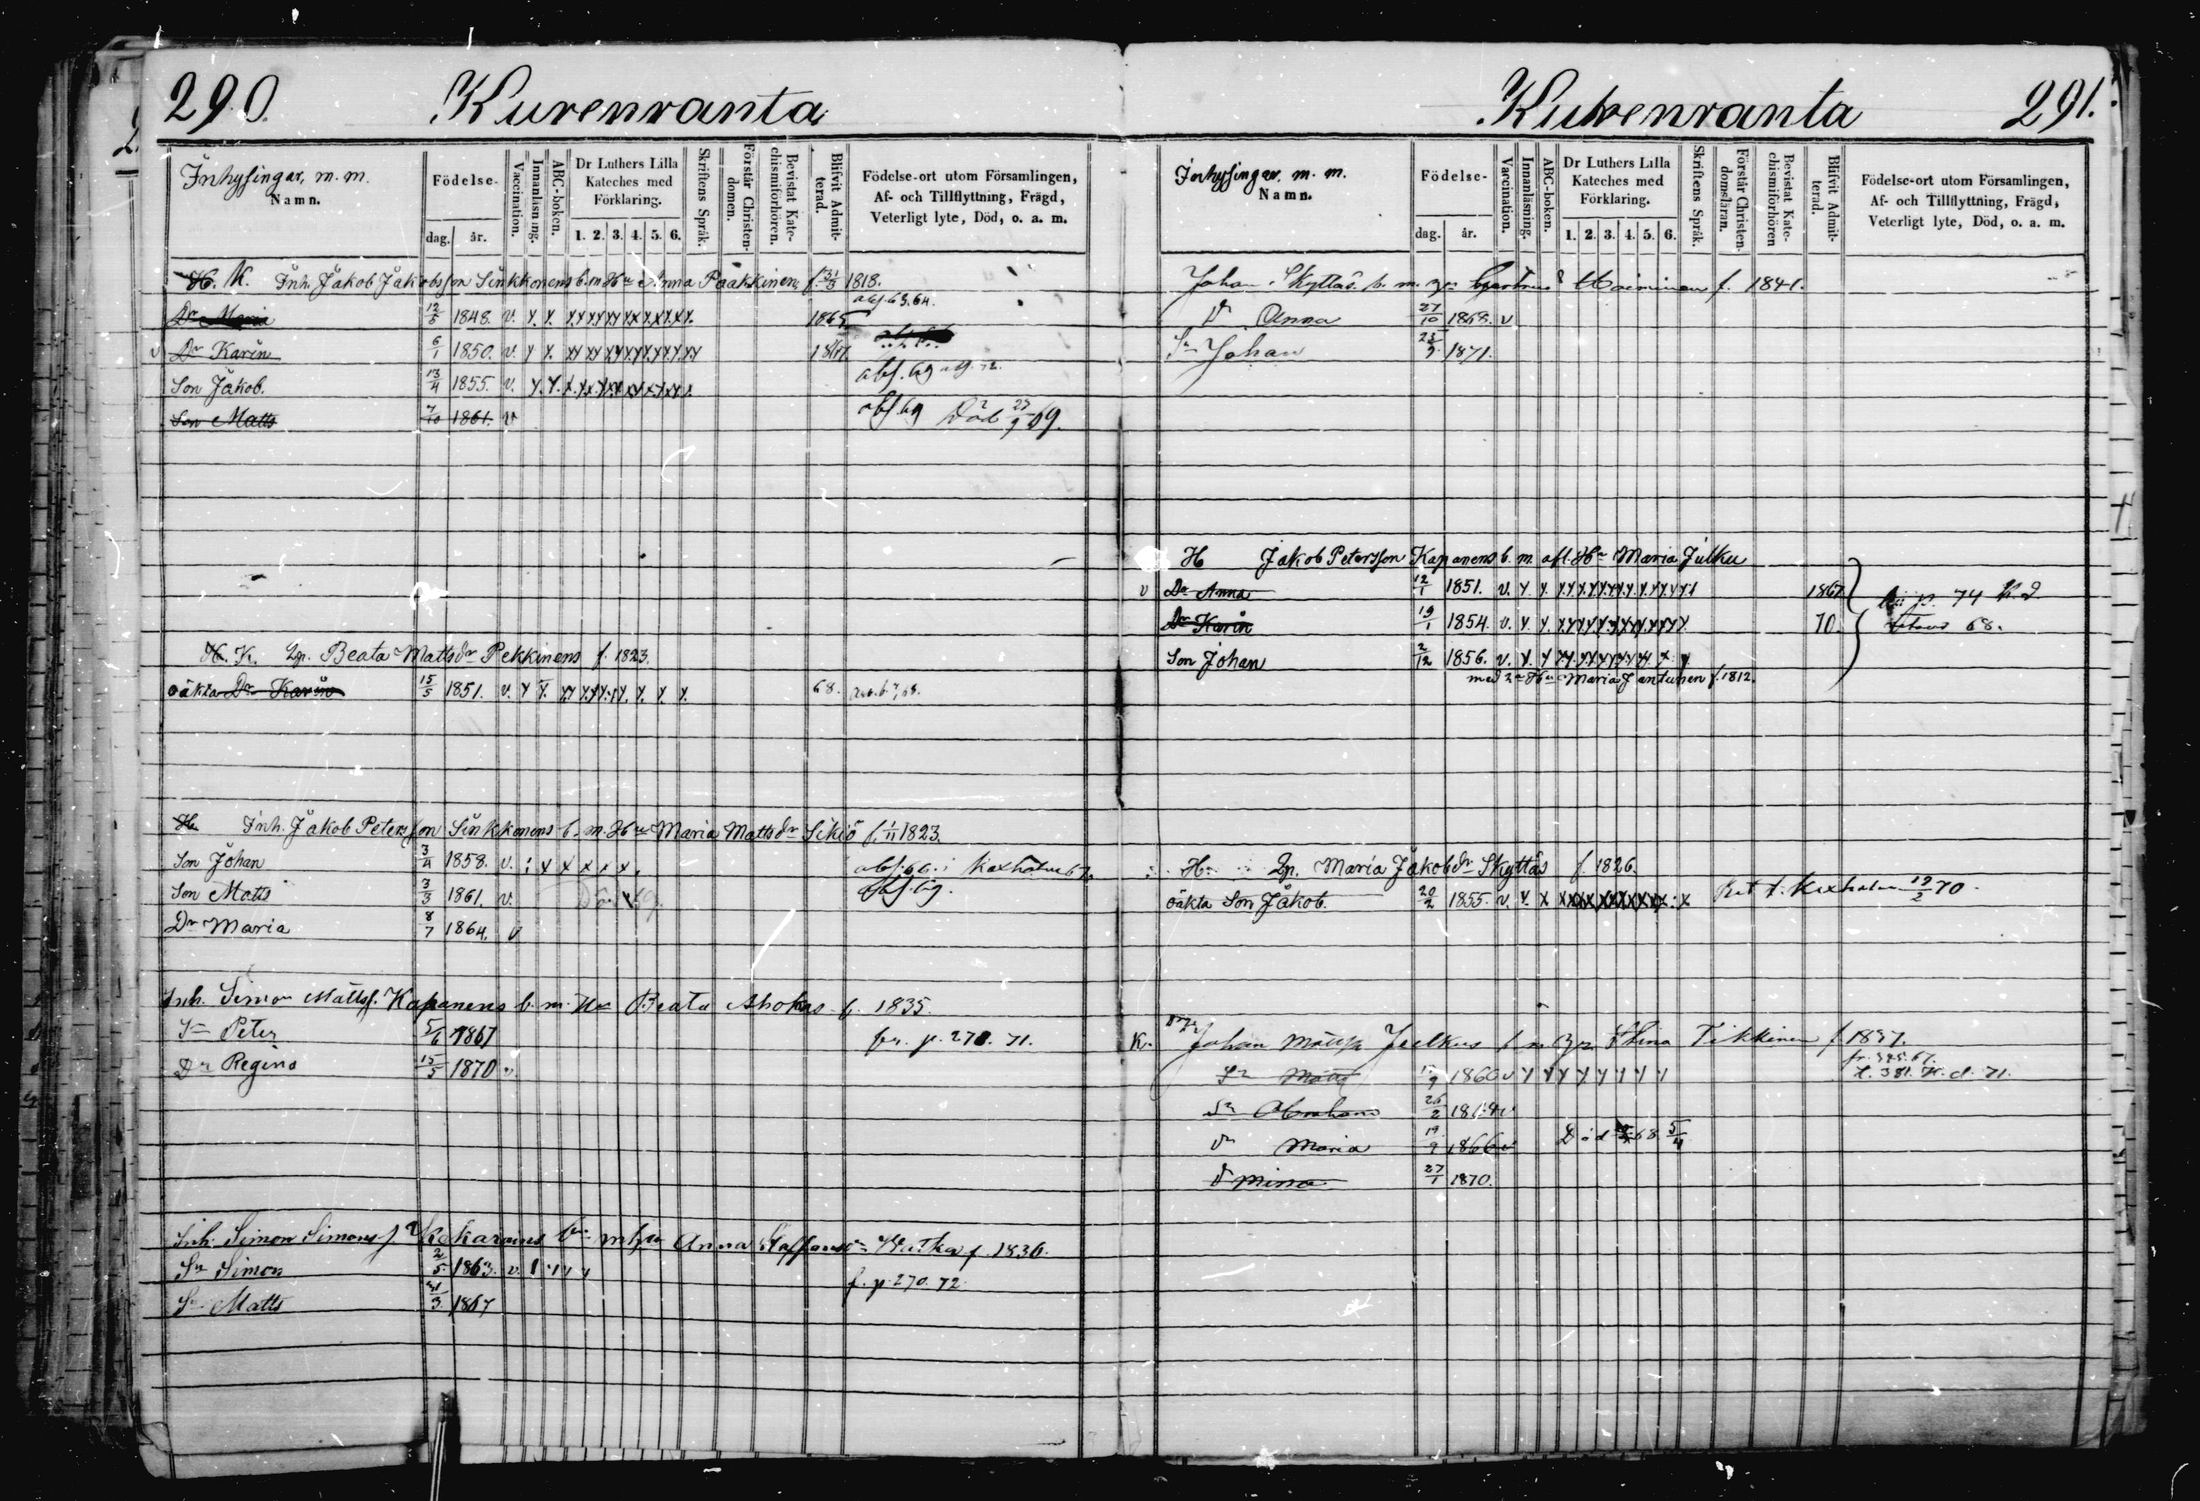 290. Kurenranta
Inhysingar, m. m.
Namn.
Födelse-
dag. år.
Vaccination.
Innanläsning.
ABC-boken.
Dr Luthers Lilla Kateches med Förklaring.
1. 2. 3. 4. 5. 6.
Skriftens Språk.
Förstår Christendomen.
Bevistat Katechismiförhören.
Blifvit Admitterad.
Födelse-ort utom Församlingen,
Af- och Tillflyttning, Frägd,
Veterligt lyte, Död, o. a. m.
H. K. Inh. Jakob Jakobsson Sinkkonens b. m. Hu Anna Paakkinen f. 1818.
Dr Maria 12/5 1848. v. 1865 abs. 63. 64.
v Dr Karin 6/1 1850. v.
Son Jakob. 13/4 1855. v. abs. 69
Son Matts 7/10 1861. v abs. 69 Död 27/9 69.
H. K. Lp. Beata Mattsdr Pekkinens f. 1823.
oäkta Dr Karin 15/5 1851. v. 68.
H. Inh. Jakob Petersson Sinkkonens b. m. Hu Maria Mattsdr Sikiö f. 1/11 1823.
Son Johan 3/4 1858. v. abs. 66. i Kexholm 67.
Son Matts 3/3 1861. v. abs. 69.
Dr Maria 8/7 1864. v
Inh. Simon Mattss. Kapanens b. m. Hu Beata Ahokas f. 1835.
Sn Peter 5/6 1867 fr. p. 270. 71.
Dr Regina 15/5 1870 v
Inh. Simon Simonss. bn m hu Anna Staffansdr f. 1836.
Sn Simon 2/5 1863. v. f. p. 270. 72.
Sn Matts 1867
Kurenranta 291.
Inhysingar. m. m.
Namn.
Födelse-
dag. år.
Vaccination.
Innanläsning.
ABC-boken.
Dr Luthers Lilla Kateches med Förklaring.
1. 2. 3. 4. 5. 6.
Skriftens Språk.
Förstår Christendomsläran.
Bevistat Katechismiförhören
Blifvit Admitterad.
Födelse-ort utom Församlingen,
Af- och Tillflyttning, Frägd,
Veterligt lyte, Död, o. a. m.
Johan Skyttäs b. m. f. 1841.
D Anna 27/10 1868. v
Sn Johan 1871.
H Jakob Petersson Kapanens b. m. afl. Hu Maria Julku
v Dr Anna 12/1 1851. v. 1867 p. 74
Dr Karin 19/1 1854. v. 70. 68.
Son Johan 2/12 1856. v.
med 2a Hu Maria Jantunen f. 1812.
H Lp. Maria Jakobsdr Skyttäs f. 1826.
oäkta Son Jakob. 20/2 1855. v. Kexholm 19/2 70.
K. Johan Julkus Stina Tikkinen f 1837.
Sn Matts 1860 v
Sn Abraham 26/2
Dr Maria 19/9 1866 v Död 68 5/4
D Minna 27/1 1870.